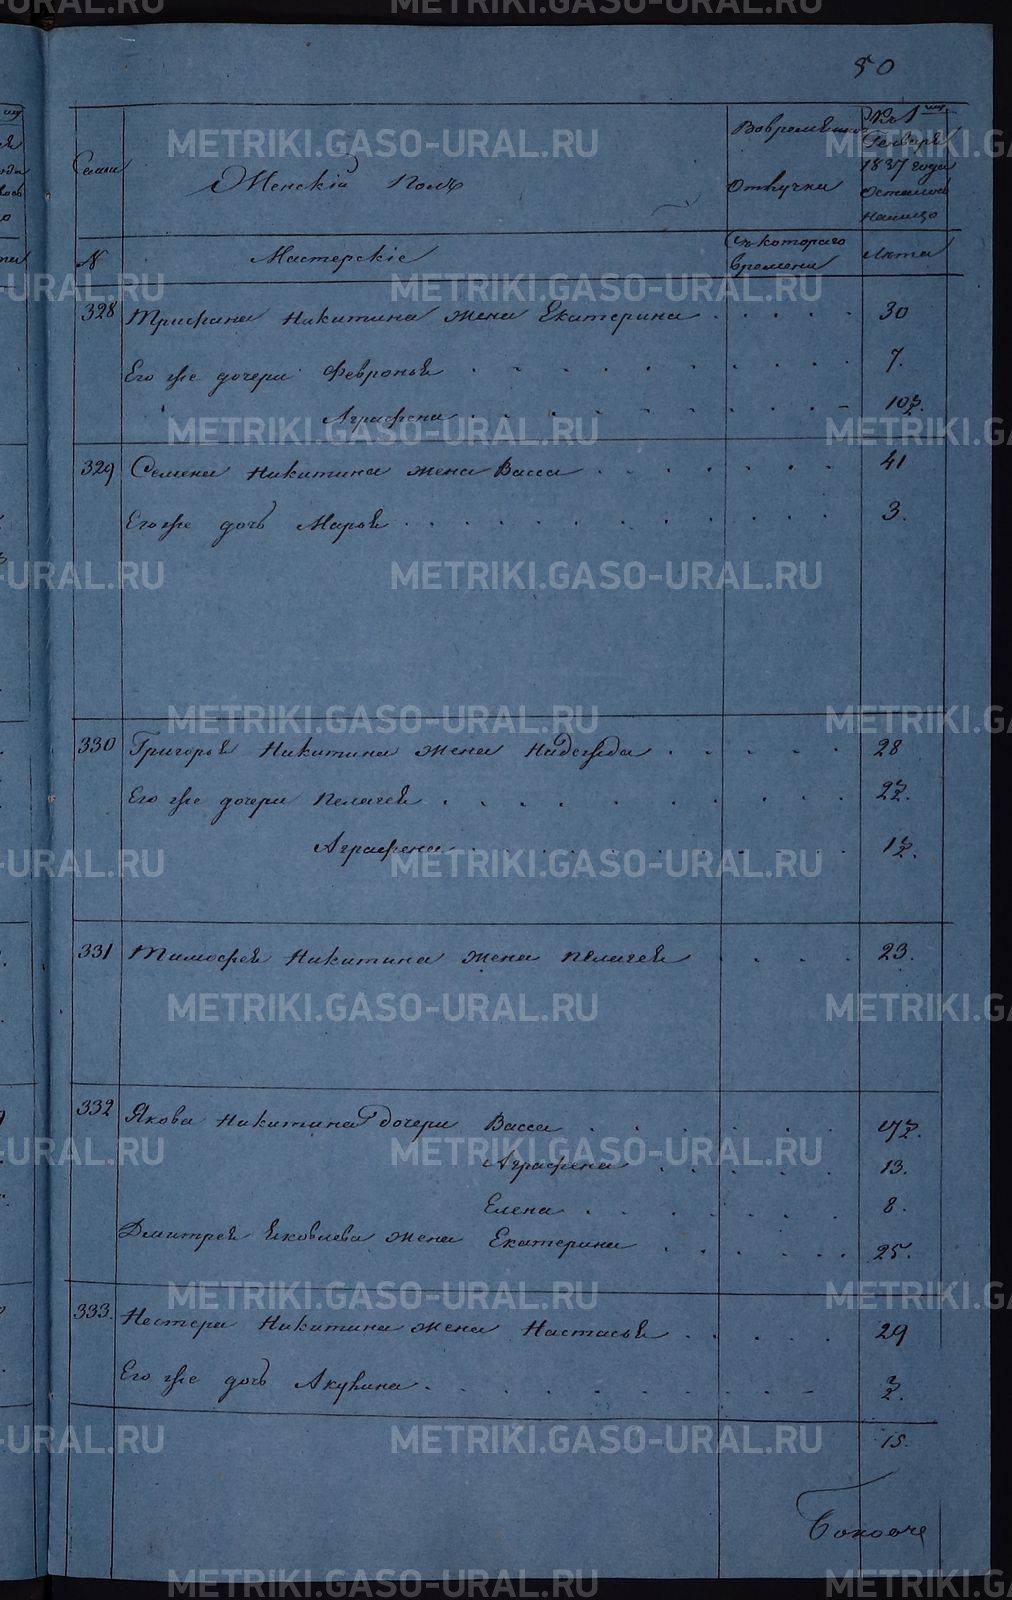 50
Семьи
Женскій полъ
Во временной
отлучки
Къ 1му
Генваря
1837 года
осталось
налицо
№
Мастерскіе
съ котораго
времени
Лѣта
328 Трифана Никитина жена Екатерина 30
Его же дочери Февронья 7.
Аграфена 10½.
329 Семена Никитина жена Васса 41
Его же дочь Марья 3.
330 Григорья Никитина жена Надежда 28
Его же дочери Пелагея 2½.
Аграфена 1½.
331 Тимофея Никитина жена Пелагея 23.
332 Якова Никитина дочери Васса 17½.
Аграфена 13.
Елена 8.
Дмитрея Яковлева жена Екатерина 25.
333. Нестера Никитина жена Настасья 29
Его же дочь Акулина ½.
15.
METRIKI.GASO-URAL.RU